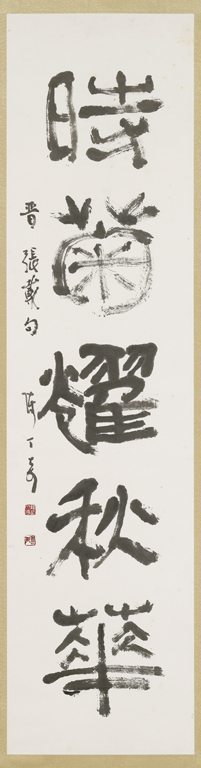 時菊耀秋華
晋張載句 陳丁奇